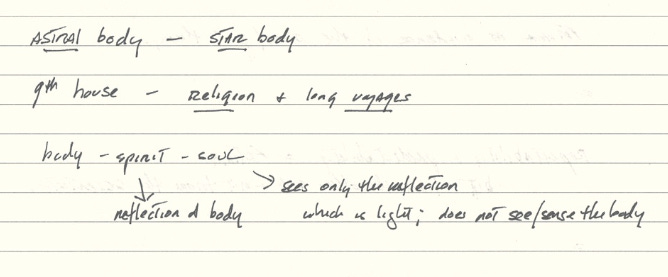 ASTRAL body – STAR body
9th house – Religion + long voyages
body – spirit – soul
sees only the reflection
reflection of body which is light; does not see/sense the body